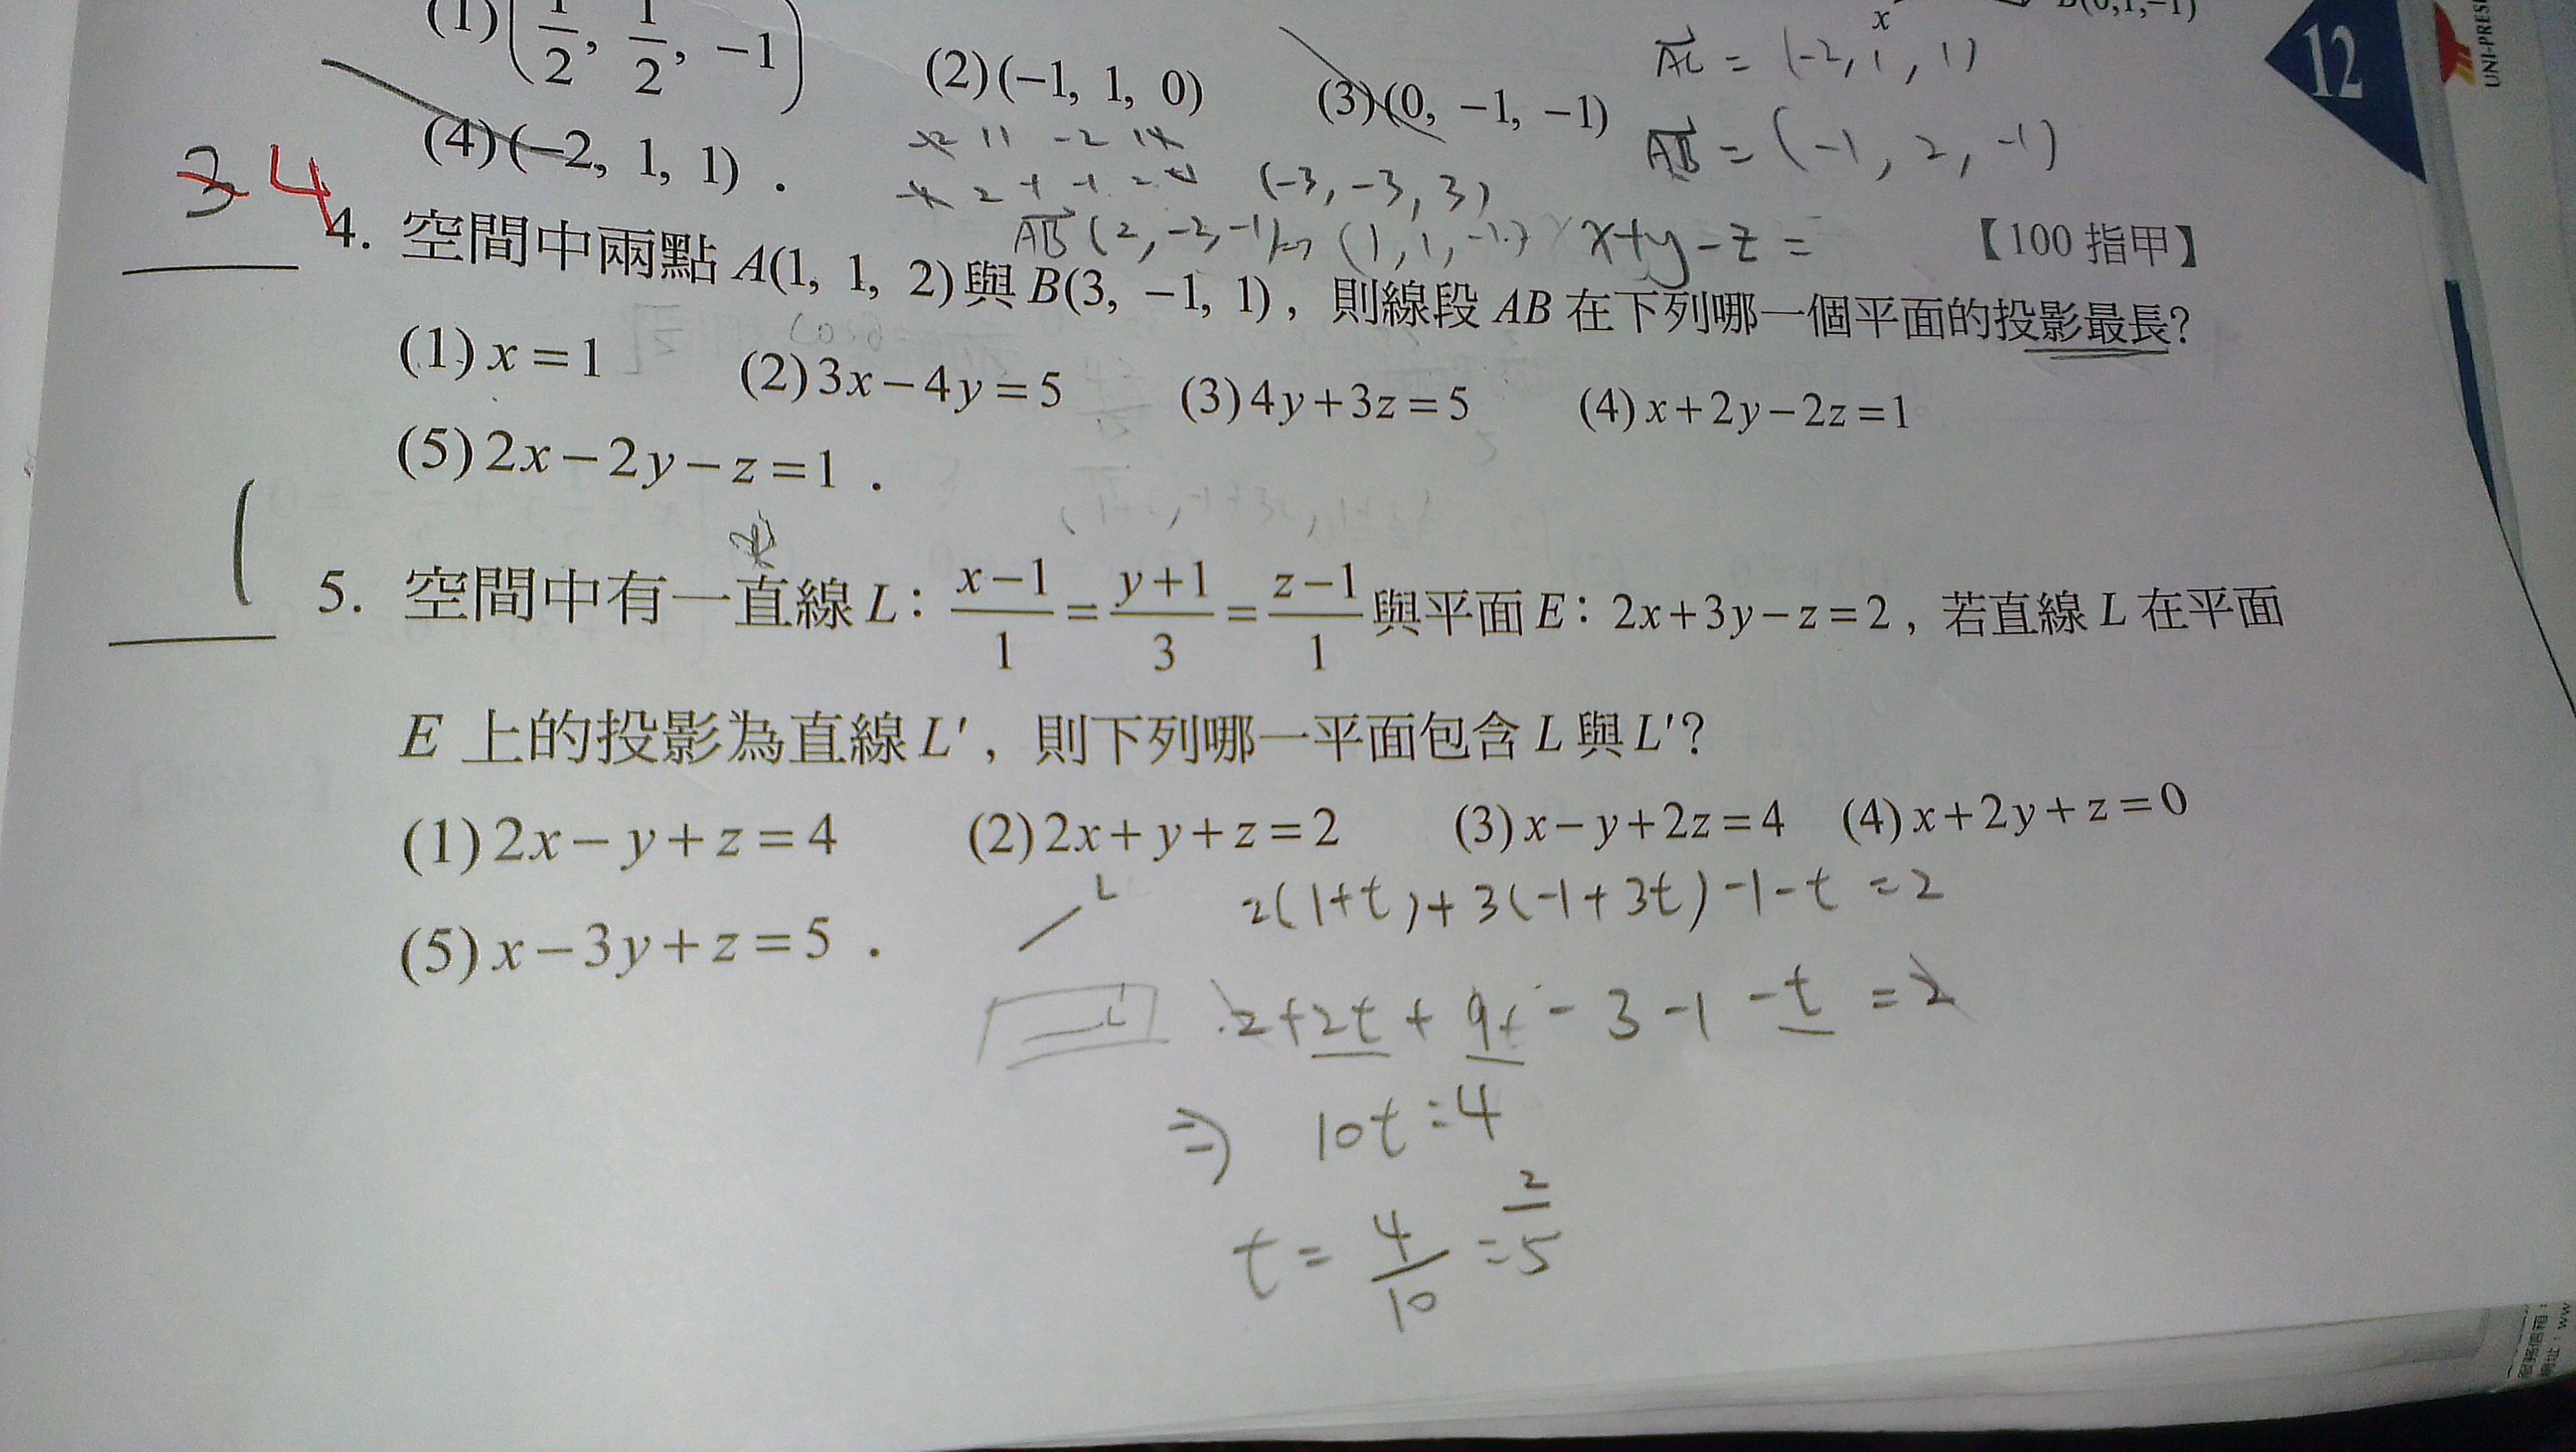 (1)(1/2, 1/2, −1) (2)(−1, 1, 0) (3)(0, −1, −1)
(4)(−2, 1, 1).
AC = (-2, 1, 1)
AB = (-1, 2, -1)
(-3, -3, 3)
(1, 1, -1) x+y-z=
【100 指甲】
3 4
4. 空間中兩點 A(1, 1, 2)與 B(3, −1, 1),則線段 AB 在下列哪一個平面的投影最長?
(1) x=1 (2) 3x−4y=5 (3) 4y+3z=5 (4) x+2y−2z=1
(5) 2x−2y−z=1.
1
5. 空間中有一直線 L: (x−1)/1 = (y+1)/3 = (z−1)/1 與平面 E: 2x+3y−z=2,若直線 L 在平面
E 上的投影為直線 L′,則下列哪一平面包含 L 與 L′?
(1) 2x−y+z=4 (2) 2x+y+z=2 (3) x−y+2z=4 (4) x+2y+z=0
(5) x−3y+z=5.
L
L'
2(1+t)+3(-1+3t)-1-t=2
2+2t+9t-3-1-t=2
⇒ 10t=4
t=4/10=2/5
12
UNI-PRES